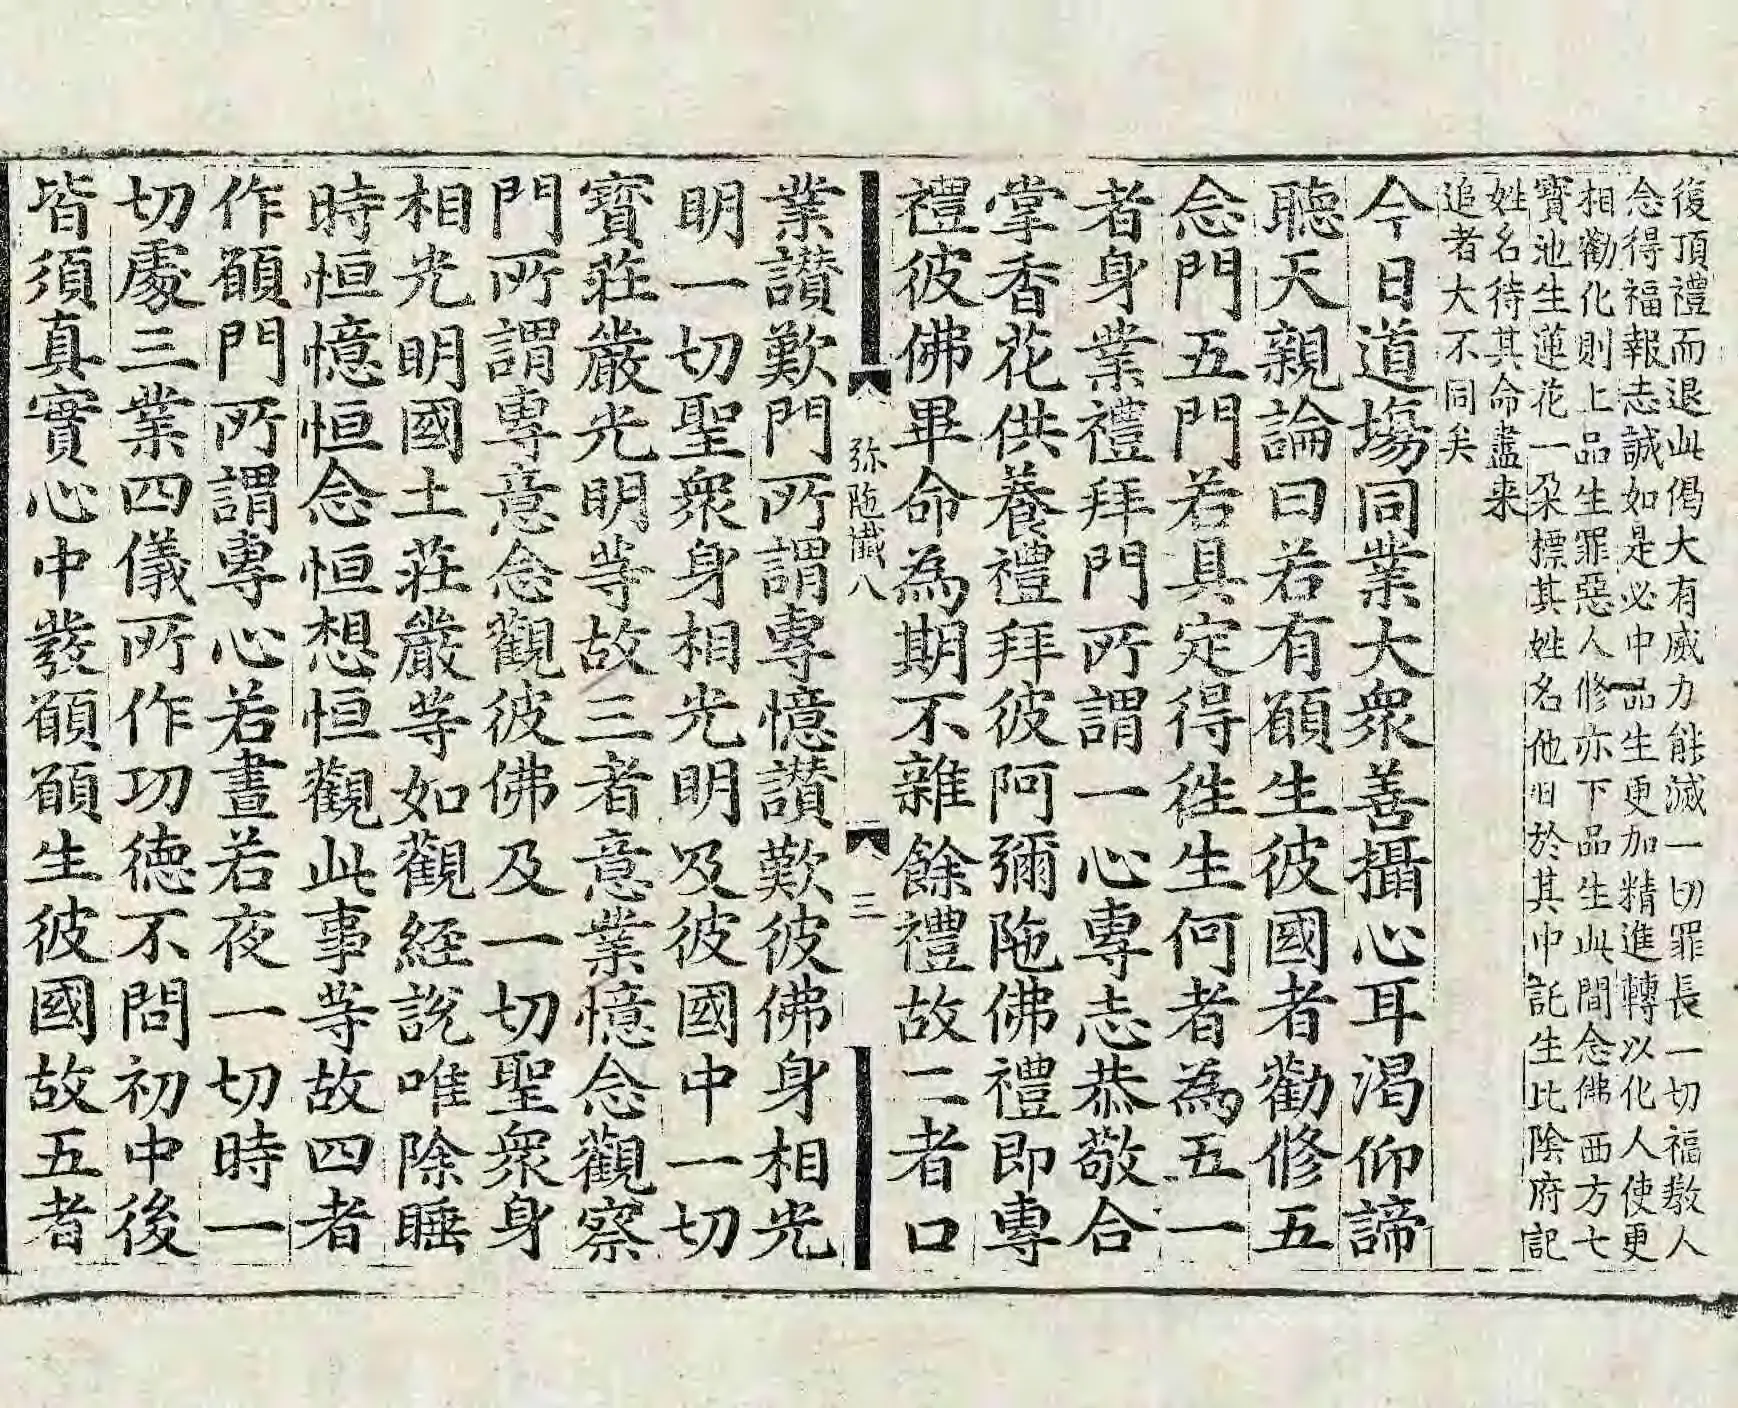 復頂禮而退此偈大有威力能滅一切罪長一切福教人
念得福報志誠如是必中品生更加精進轉以化人使更
相勸化則上品生罪惡人修亦下品生此間念佛西方七
寶池生蓮花一朶標其姓名他日於其中託生此陰府記
姓名待其命盡来
追者大不同矣
今日道場同業大衆善攝心耳渴仰諦
聽天親論曰若有願生彼國者勸修五
念門五門若具定得徃生何者為五一
者身業禮拜門所謂一心專志恭敬合
掌香花供養禮拜彼阿彌陁佛禮即專
禮彼佛畢命為期不雜餘禮故二者口
弥陁懴八
三
業讃歎門所謂專憶讃歎彼佛身相光
明一切聖衆身相光明及彼國中一切
寳莊嚴光明等故三者意業憶念觀察
門所謂專意念觀彼佛及一切聖衆身
相光明國土莊嚴等如觀經説唯除睡
時恒憶恒念恒想恒觀此事等故四者
作願門所謂專心若晝若夜一切時一
切處三業四儀所作功德不問初中後
皆須真實心中發願願生彼國故五者